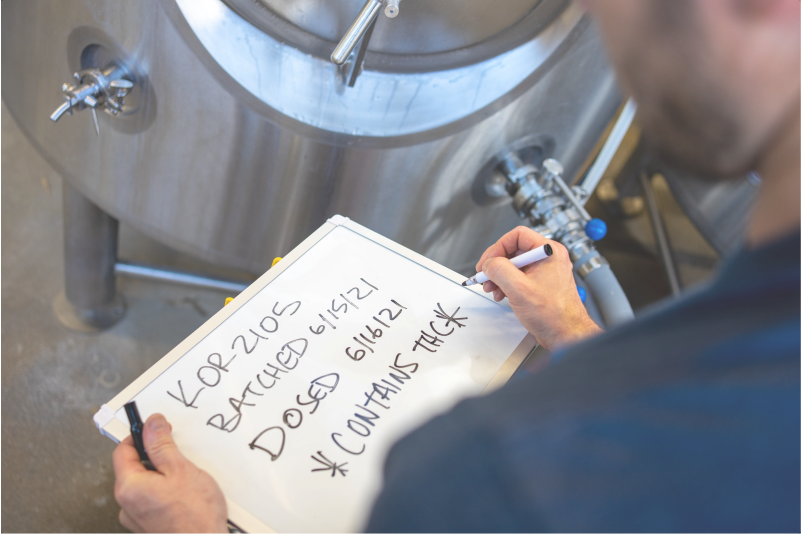 KOR-2105
BATCHED 6/15/21
DOSED 6/16/21
*CONTAINS THC*